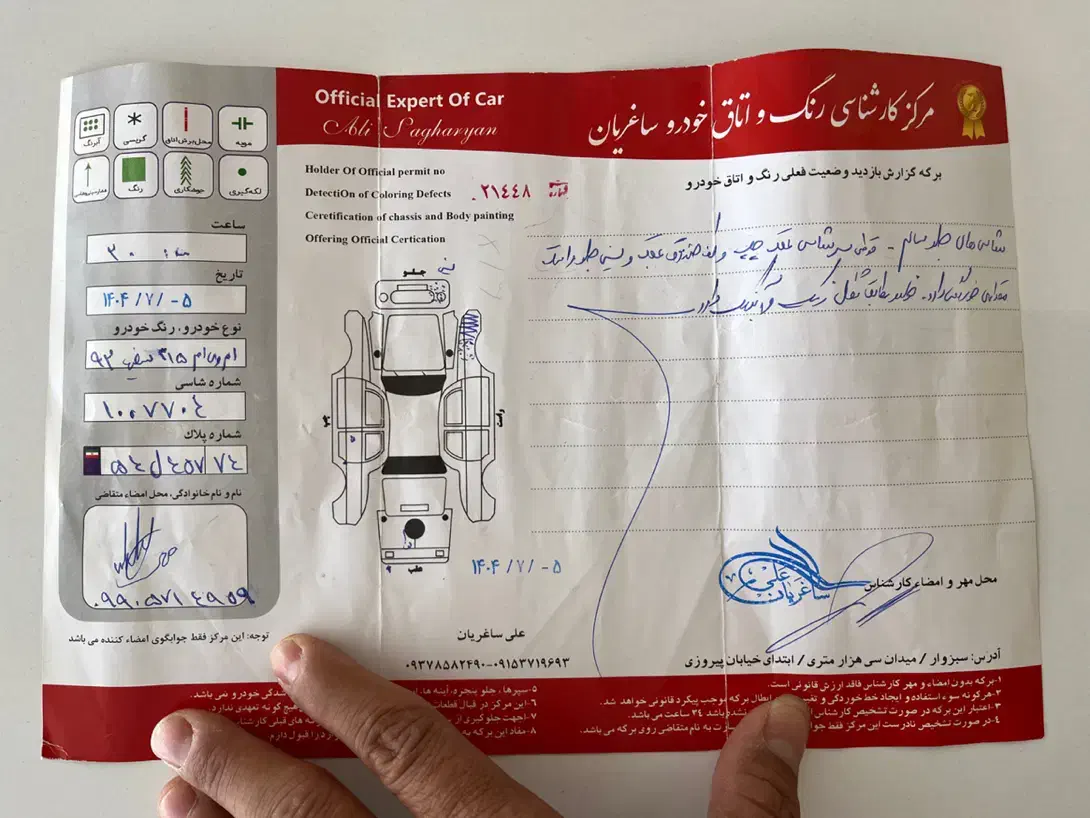 مرکز کارشناسی رنگ و اتاق خودرو ساغریان
Official Expert Of Car
Ali Sagharyan
برگه گزارش بازدید وضعیت فعلی رنگ و اتاق خودرو
Holder Of Official permit no
DetectiOn of Coloring Defects
Ceretification of chassis and Body painting
Offering Official Certication
شماره
۲۱۴۴۸
مویه
محل برش اتاق
گریسی
آبرنگ
لکه گیری
جوشکاری
رنگ
ساعت
تاریخ
۱۴۰۴/۷/-۵
نوع خودرو، رنگ خودرو
ام وی ام ۳۱۵ سفید ۹۳
شماره شاسی
۱۰۰۷۷۰۴
شماره پلاک
۵۴ ل ۴۵۷ ۷۴
نام و نام خانوادگی، محل امضاء متقاضی
۰۹۹۰۵۷۱۴۹۵۹
توجه: این مرکز فقط جوابگوی امضاء کننده می باشد
جلو
چپ
راست
عقب
۱۴۰۴/۷/-۵
شاسی های جلو سالم -
علی ساغریان
محل مهر و امضاء کارشناس
علی ساغریان
۰۹۳۷۸۵۸۲۴۹۰-۰۹۱۵۳۷۱۹۶۹۳
آدرس: سبزوار / میدان سی هزار متری / ابتدای خیابان پیروزی
۱-برگه بدون امضاء و مهر کارشناس فاقد ارزش قانونی است.
۲-هرگونه سوء استفاده و ایجاد خط خوردگی و ابطال برگه موجب پیگرد قانونی خواهد شد.
۳-اعتبار این برگه در صورت تشخیص کارشناس باشد ۲۴ ساعت می باشد.
۴-در صورت تشخیص نادرست این مرکز فقط به نام متقاضی روی برگه می باشد.
۵-سپرها، جلو پنجره، آینه ها، خودرو نمی باشد.
۶-این مرکز در قبال قطعات هیچ گونه تعهدی ندارد.
۷-جهت جلوگیری از های قبلی کارشناسی
۸-مفاد این برگه به را قبول دارم